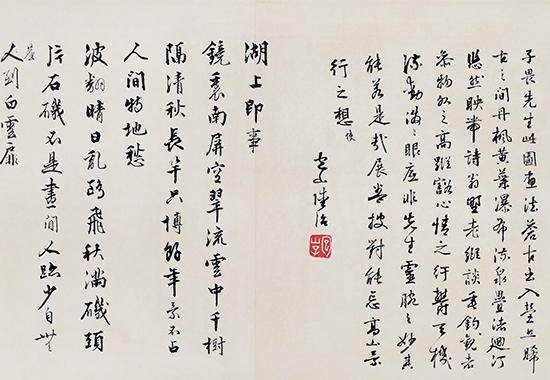 子畏先生此圖畫法蒼古出入營丘晞
古之間丹楓黃葉瀑布流泉疊法迴汀
悠然映帶詩翁墅老縱談垂釣觀者
物外之高蹤豁心情之行鬱天機
流動滿之眼底非先生靈腕之妙其
能若是哉展卷披對能忘高山景
行之想
包山陸治
湖上即事
鏡裏南屏空翠流雲中千樹
隔清秋長竿只博餘年景不占
人間特地愁
波翻晴日亂飛秋滿磯頭
片石磯不是畫間人跡少自
人到白雲扉